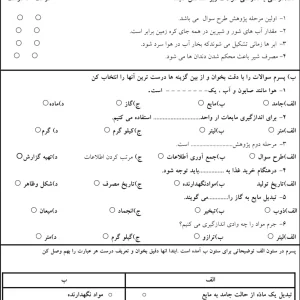 ۱- اولین مرحله پژوهش طرح سوال می باشد.
۲- مقدار آب های شور و شیرین در همه جای کره زمین برابر است.
۳- ابر ها زمانی تشکیل می شوندکه بخار آب در هوا سرد شود.
۴- مصرف شیر باعث محکم شدن دندان ها می شود.
ب) پسرم سوالات را با دقت بخوان و از بین گزینه ها درست ترین آنها را انتخاب کن
۱- هوا مانند صابون و آب ، یک--------است.
الف)جامد ب)مایع ج)گاز د)ماده
۲- برای اندازگیری مایعات از واحد....................استفاده می کنیم.
الف)متر ب)لیتر ج)کیلو گرم د)گرم
۳- مرحله دوم پژوهش................ است.
الف)طرح سوال ب)جمع آوری اطلاعات ج) مرتب کردن اطلاعات د)تهیه گزارش
۴- درهنگام خرید غذا به ..............باید توجه شود.
الف) تاریخ تولید ب)موادنگهدارنده ج)تاریخ مصرف د)شکل وظاهر
۵- تبدیل مایع به گاز را..............می گویند.
الف)ذوب ب)تبخیر ج)انجماد د)میعان
۶- جرم مواد را چه وادی اندازگیری می کنیم؟
الف)لیتر ب)ترازو ج)گیلو گرم د)متر
پسرم در ستون الف توضیحاتی برای ستون ب آمده است. ابتدا آنها دقیق بخوان و تعریف درست هر عبارت را بهم وصل کن
الف ب
تبدیل یک ماده از حالت جامد به مایع مواد نگهدارنده